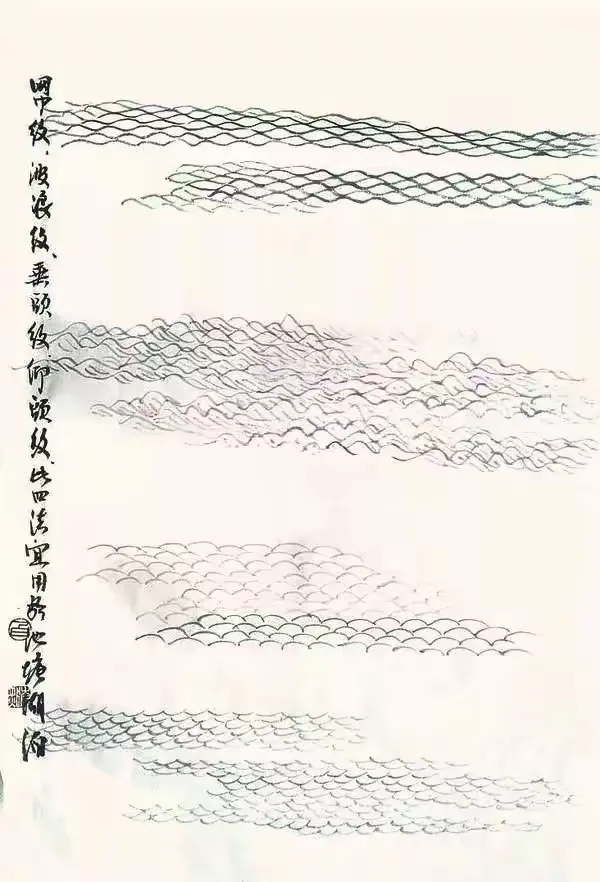 网巾纹、波浪纹、垂头纹、仰头纹、此四法宜用於池塘湖泊